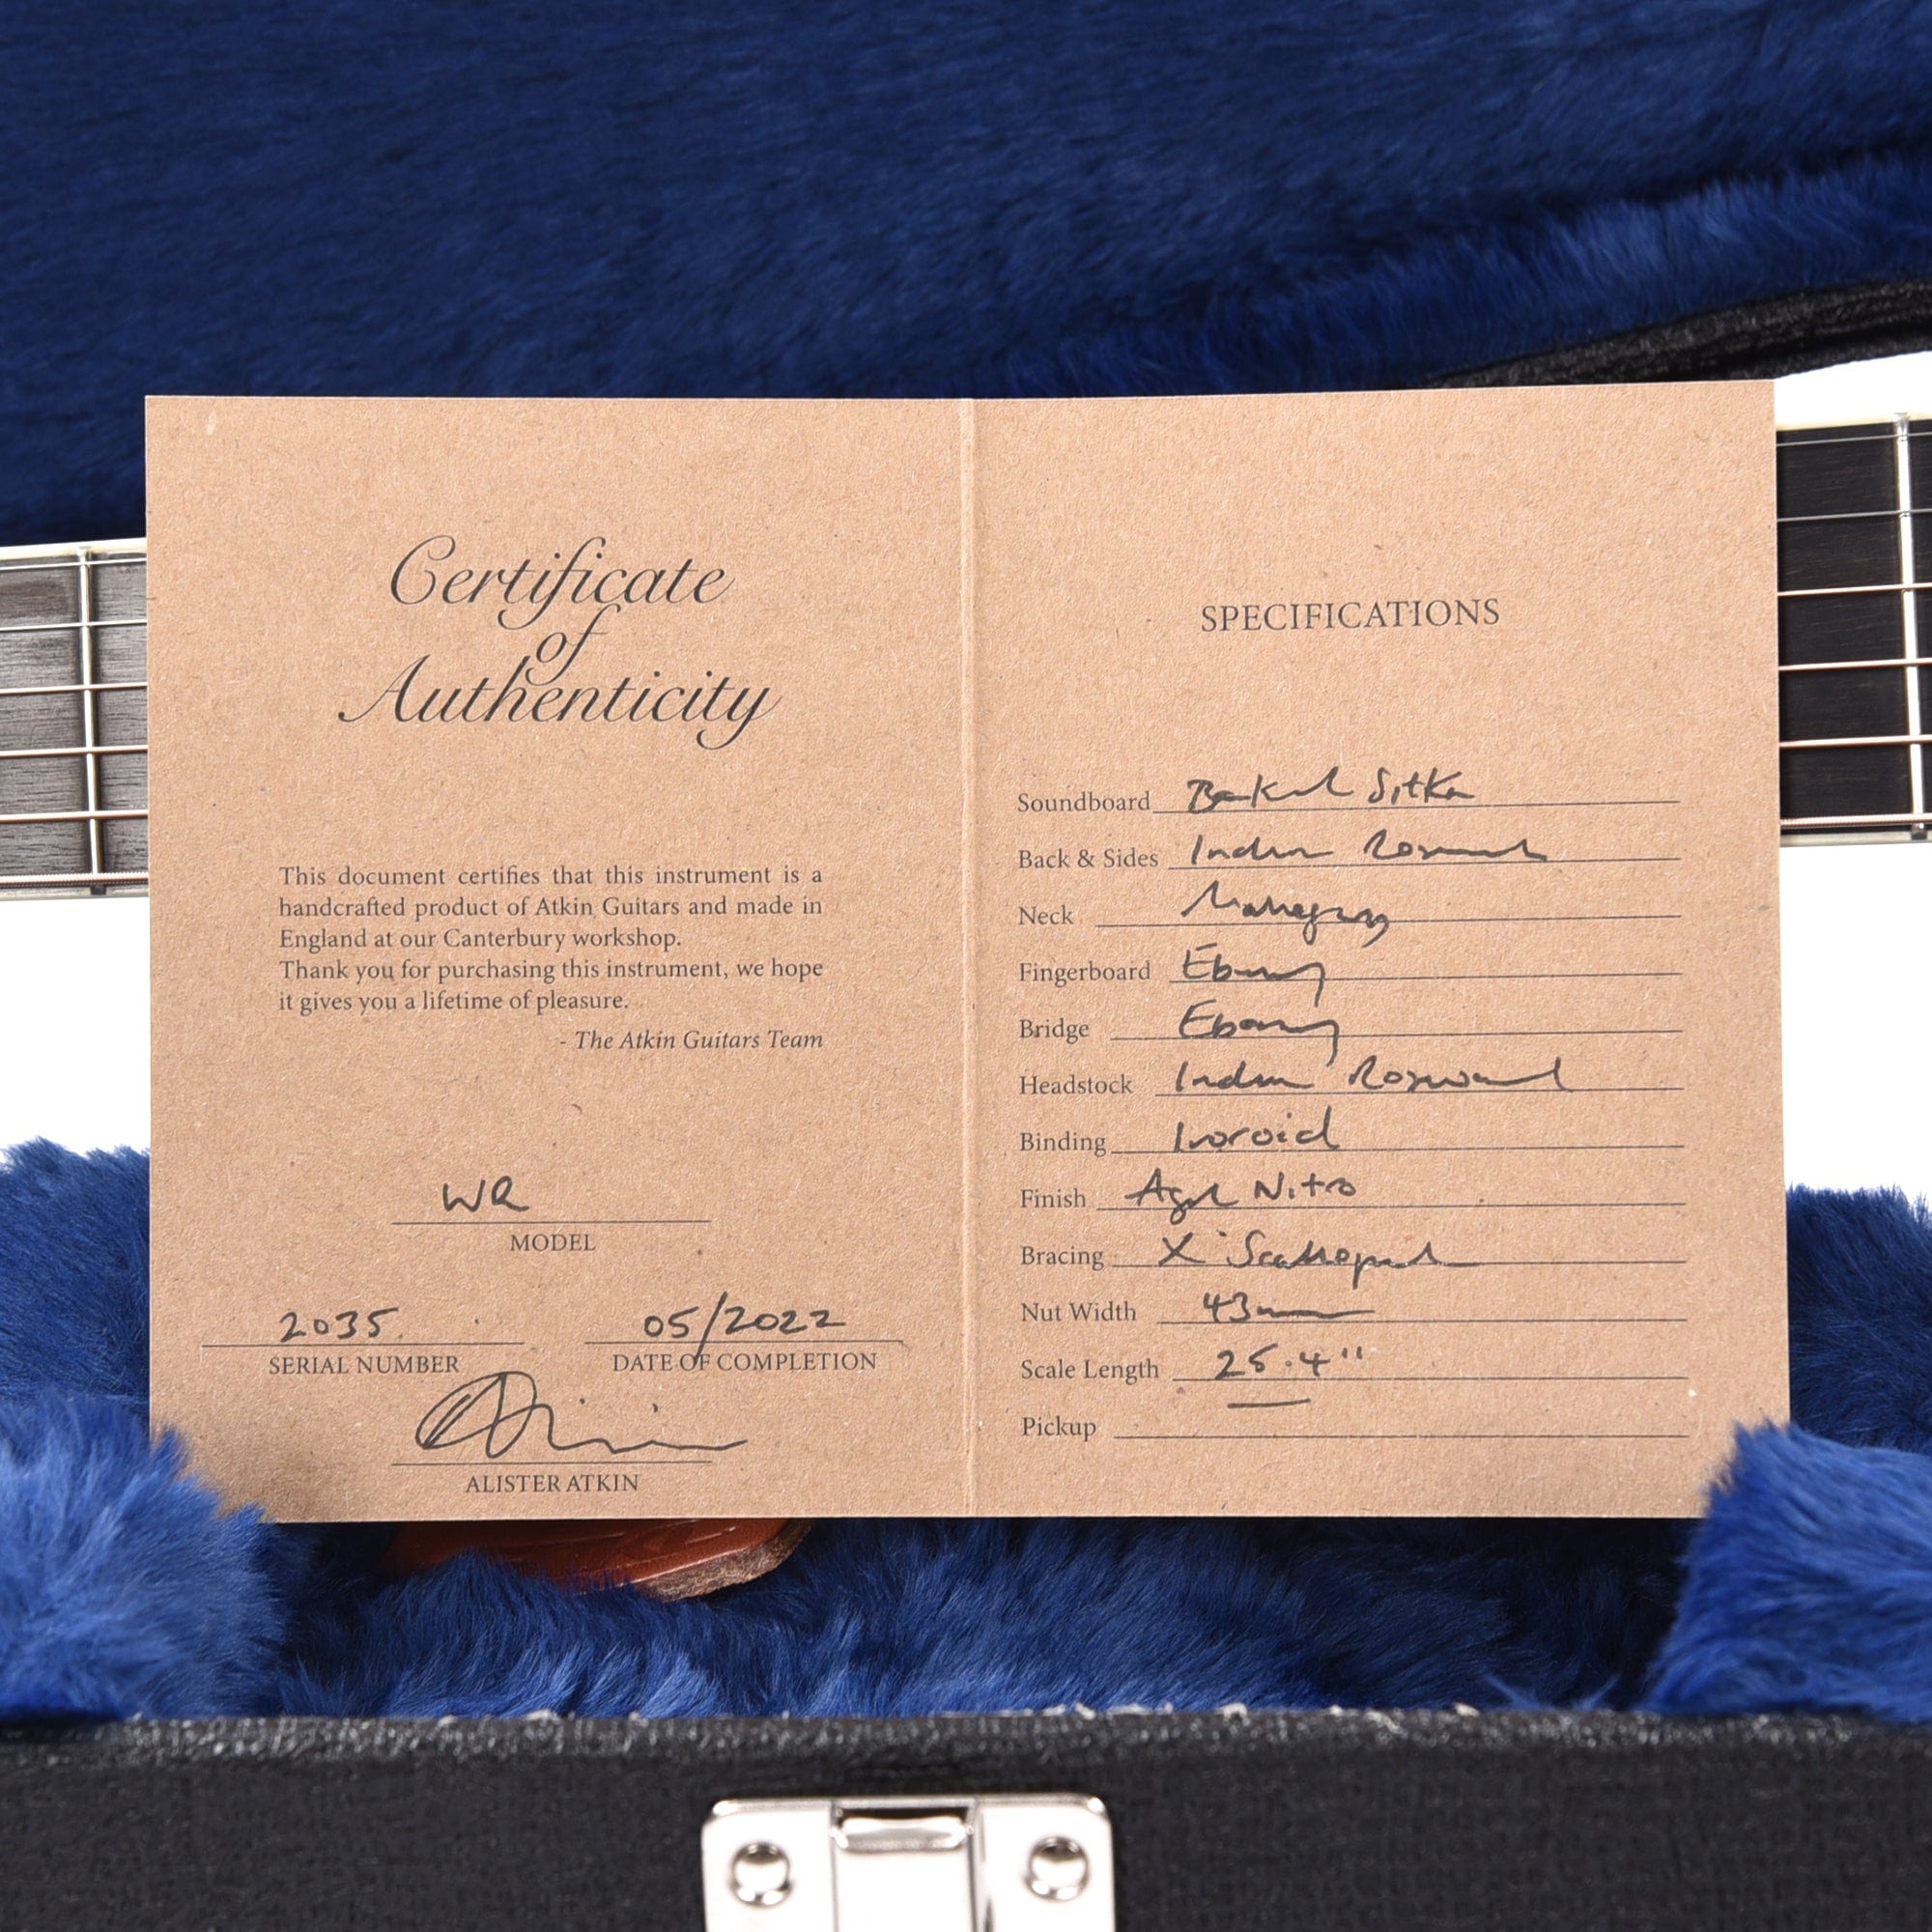 Certificate
of
Authenticity
This document certifies that this instrument is a
handcrafted product of Atkin Guitars and made in
England at our Canterbury workshop.
Thank you for purchasing this instrument, we hope
it gives you a lifetime of pleasure.
- The Atkin Guitars Team
WR
MODEL
2035
SERIAL NUMBER
05/2022
DATE OF COMPLETION
ALISTER ATKIN
SPECIFICATIONS
Soundboard Baked Sitka
Back & Sides Indian Rosewood
Neck Mahogany
Fingerboard Ebony
Bridge Ebony
Headstock Indian Rosewood
Binding Ivoroid
Finish Aged Nitro
Bracing X Scalloped
Nut Width 43mm
Scale Length 25.4"
Pickup —